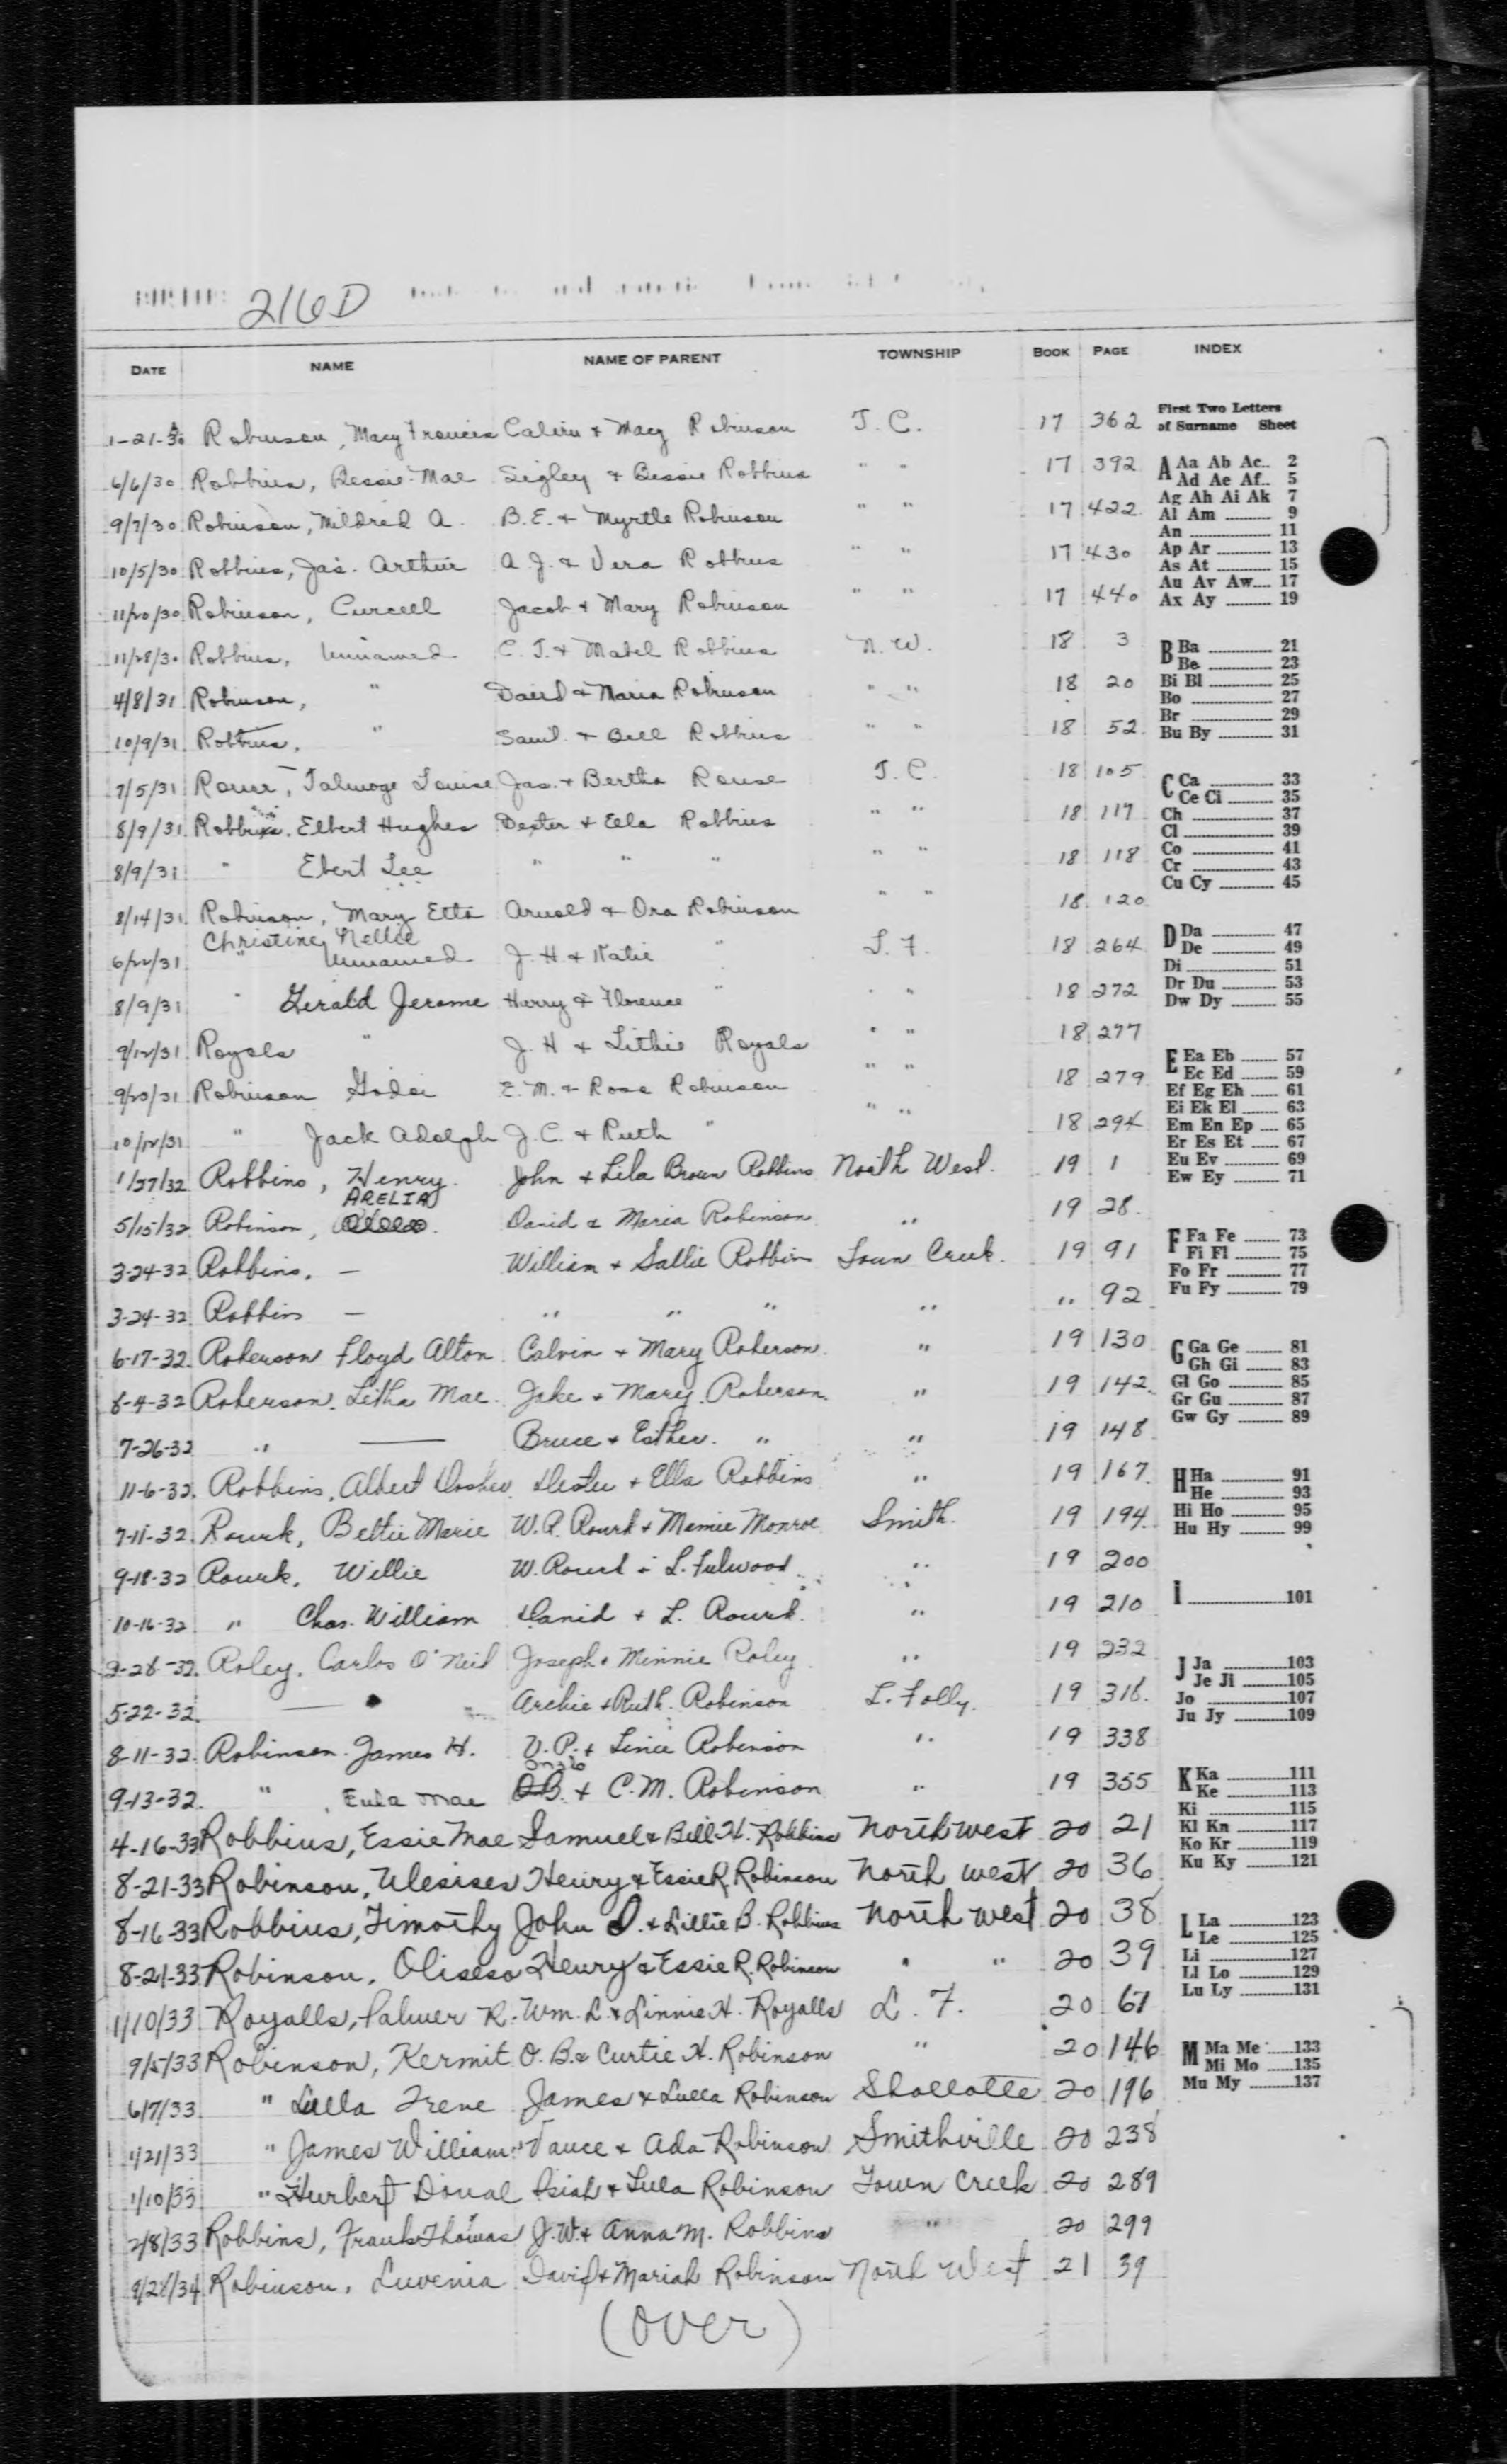 BIRTHS 216D
DATE NAME NAME OF PARENT TOWNSHIP BOOK PAGE INDEX
1-21-30 Robinson, Mary Frances Calvin + Mary Robinson T. C. 17 362
6/6/30 Robbins, Bessie Mae Sigley + Bessie Robbins " " 17 392
9/7/30 Robinson, Mildred A. B. E. + Myrtle Robinson " " 17 422
10/5/30 Robbins, Jas. Arthur A. J. + Vera Robbins " " 17 430
11/20/30 Robinson, Curcell Jacob + Mary Robinson " " 17 440
11/28/30 Robbins, Unnamed C. J. + Mabel Robbins N. W. 18 3
4/8/31 Robinson, " David + Maria Robinson " " 18 20
10/9/31 Robbins, " Saml. + Bell Robbins " " 18 52
7/5/31 Talmage Louise Jas. + Bertha Rouse T. C. 18 105
8/9/31 Robbins, Elbert Hughes Dexter + Ella Robbins " " 18 117
8/9/31 " Ebert Lee " " " " " 18 118
8/14/31 Robinson, Mary Etta Arnold + Ora Robinson " " 18 120
Christine Nellie
6/22/31 " Unnamed J. H + Katie " L. F. 18 264
8/9/31 " Gerald Jerome Harry + Florence " " " 18 272
9/12/31 Royals " J. H + Lithie Royals " " 18 277
9/20/31 Robinson E. M. + Rosa Robinson " " 18 279
10/12/31 " Jack Adolph J. C. + Ruth " " " 18 294
1/27/32 Robbins, Henry John + Lila Brown Robbins North West. 19 1
ARELIA
5/15/32 Robinson, David & Maria Robinson " 19 28.
3-24-32 Robbins, — William + Sallie Robbins Town Creek. 19 91
3-24-32 Robbins — " " " " " 92
6-17-32 Roberson Floyd Alton Calvin + Mary Roberson. " 19 130
8-4-32 Roberson, Letha Mae. Jake + Mary Roberson. " 19 142.
7-26-32 " — Bruce + Esther. " " 19 148
11-6-32. Robbins, Albert Dosher Dexter + Ella Robbins " 19 167.
7-11-32. Rourk, Bettie Marie W. R. Rourk + Mamie Monroe Smith. 19 194
9-18-32 Rourk, Willie W. Rourk + L. Fulwood. " 19 200
10-16-32 " Chas. William David + L. Rourk. " 19 210
9-28-32. Roley, Carlos O'Neil Joseph + Minnie Roley " 19 232
5-22-32. — Archie + Ruth. Robinson L. Folly. 19 318.
8-11-32. Robinson. James H. V. P. + Linie Robinson " 19 338
9-13-32. " Eula Mae O.B. + C. M. Robinson " 19 355
4-16-33 Robbins, Essie Mae Samuel & Bell H. Robbins Northwest 20 21
8-21-33 Robinson, Ulesises Henry & Essie R. Robinson North West 20 36
8-16-33 Robbins, Timothy John D. & Lillie B. Robbins North West 20 38
8-21-33 Robinson, Oliseso Henry & Essie R. Robinson " " 20 39
1/10/33 Royalls, Palmer R. Wm. L. & Linnie H. Royalls L. F. 20 61
9/5/33 Robinson, Kermit O. B. & Curtie H. Robinson " 20 146
6/7/33 " Lulla Irene James & Lulla Robinson Shallotte 20 196
1/21/33 " James William Vance & Ada Robinson Smithville 20 238
1/10/33 " Hurbert Doval Isiah & Lula Robinson Town Creek 20 289
2/8/33 Robbins, Frank Thomas J. W. & Anna M. Robbins " 20 299
9/28/34 Robinson, Luvenia David & Mariah Robinson North West 21 39
(over)
First Two Letters
of Surname Sheet
A Aa Ab Ac.. 2
Ad Ae Af.. 5
Ag Ah Ai Ak 7
Al Am 9
An 11
Ap Ar 13
As At 15
Au Av Aw 17
Ax Ay 19
B Ba 21
Be 23
Bi Bl 25
Bo 27
Br 29
Bu By 31
C Ca 33
Ce Ci 35
Ch 37
Cl 39
Co 41
Cr 43
Cu Cy 45
D Da 47
De 49
Di 51
Dr Du 53
Dw Dy 55
E Ea Eb 57
Ec Ed 59
Ef Eg Eh 61
Ei Ek El 63
Em En Ep 65
Er Es Et 67
Eu Ev 69
Ew Ey 71
F Fa Fe 73
Fi Fl 75
Fo Fr 77
Fu Fy 79
G Ga Ge 81
Gh Gi 83
Gl Go 85
Gr Gu 87
Gw Gy 89
H Ha 91
He 93
Hi Ho 95
Hu Hy 99
I 101
J Ja 103
Je Ji 105
Jo 107
Ju Jy 109
K Ka 111
Ke 113
Ki 115
Kl Kn 117
Ko Kr 119
Ku Ky 121
L La 123
Le 125
Li 127
Ll Lo 129
Lu Ly 131
M Ma Me 133
Mi Mo 135
Mu My 137